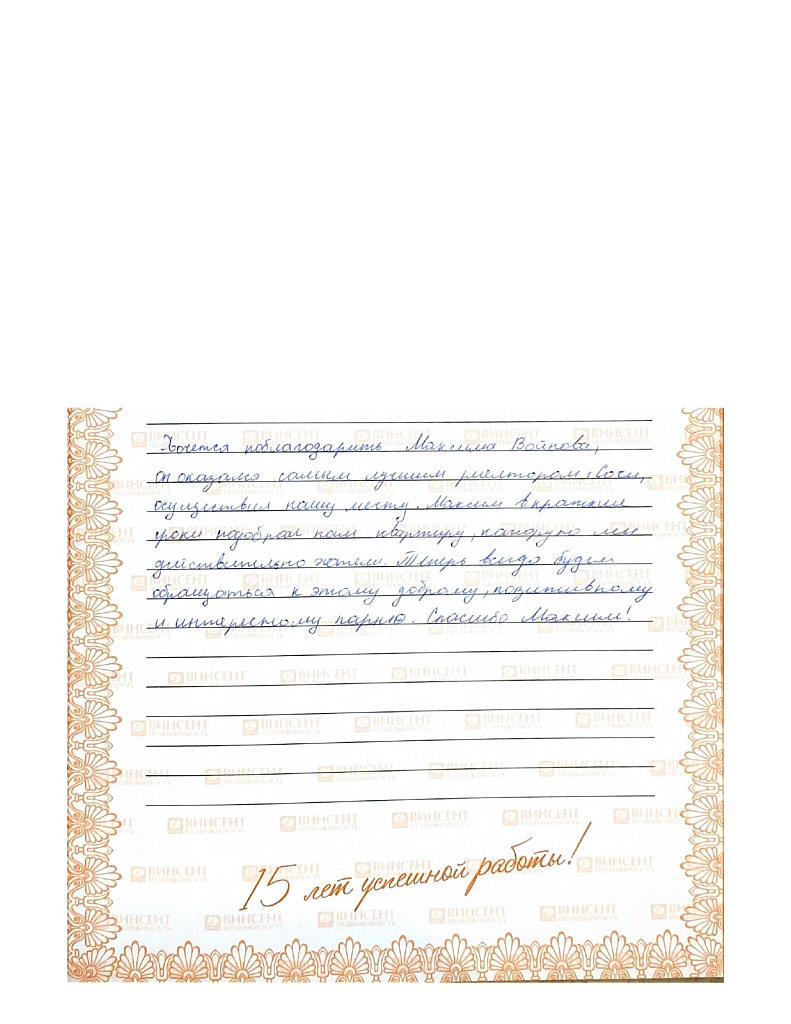 Хочется поблагодарить Максима Войнова,
он оказался самым лучшим риелтором г. Сочи,
осуществил нашу мечту. Максим в краткие
сроки подобрал нам квартиру, которую мы
действительно хотели. Теперь всегда будем
обращаться к этому доброму, позитивному
и интересному парню. Спасибо Максим!
15 лет успешной работы!
ВИНСЕНТ
НЕДВИЖИМОСТЬ